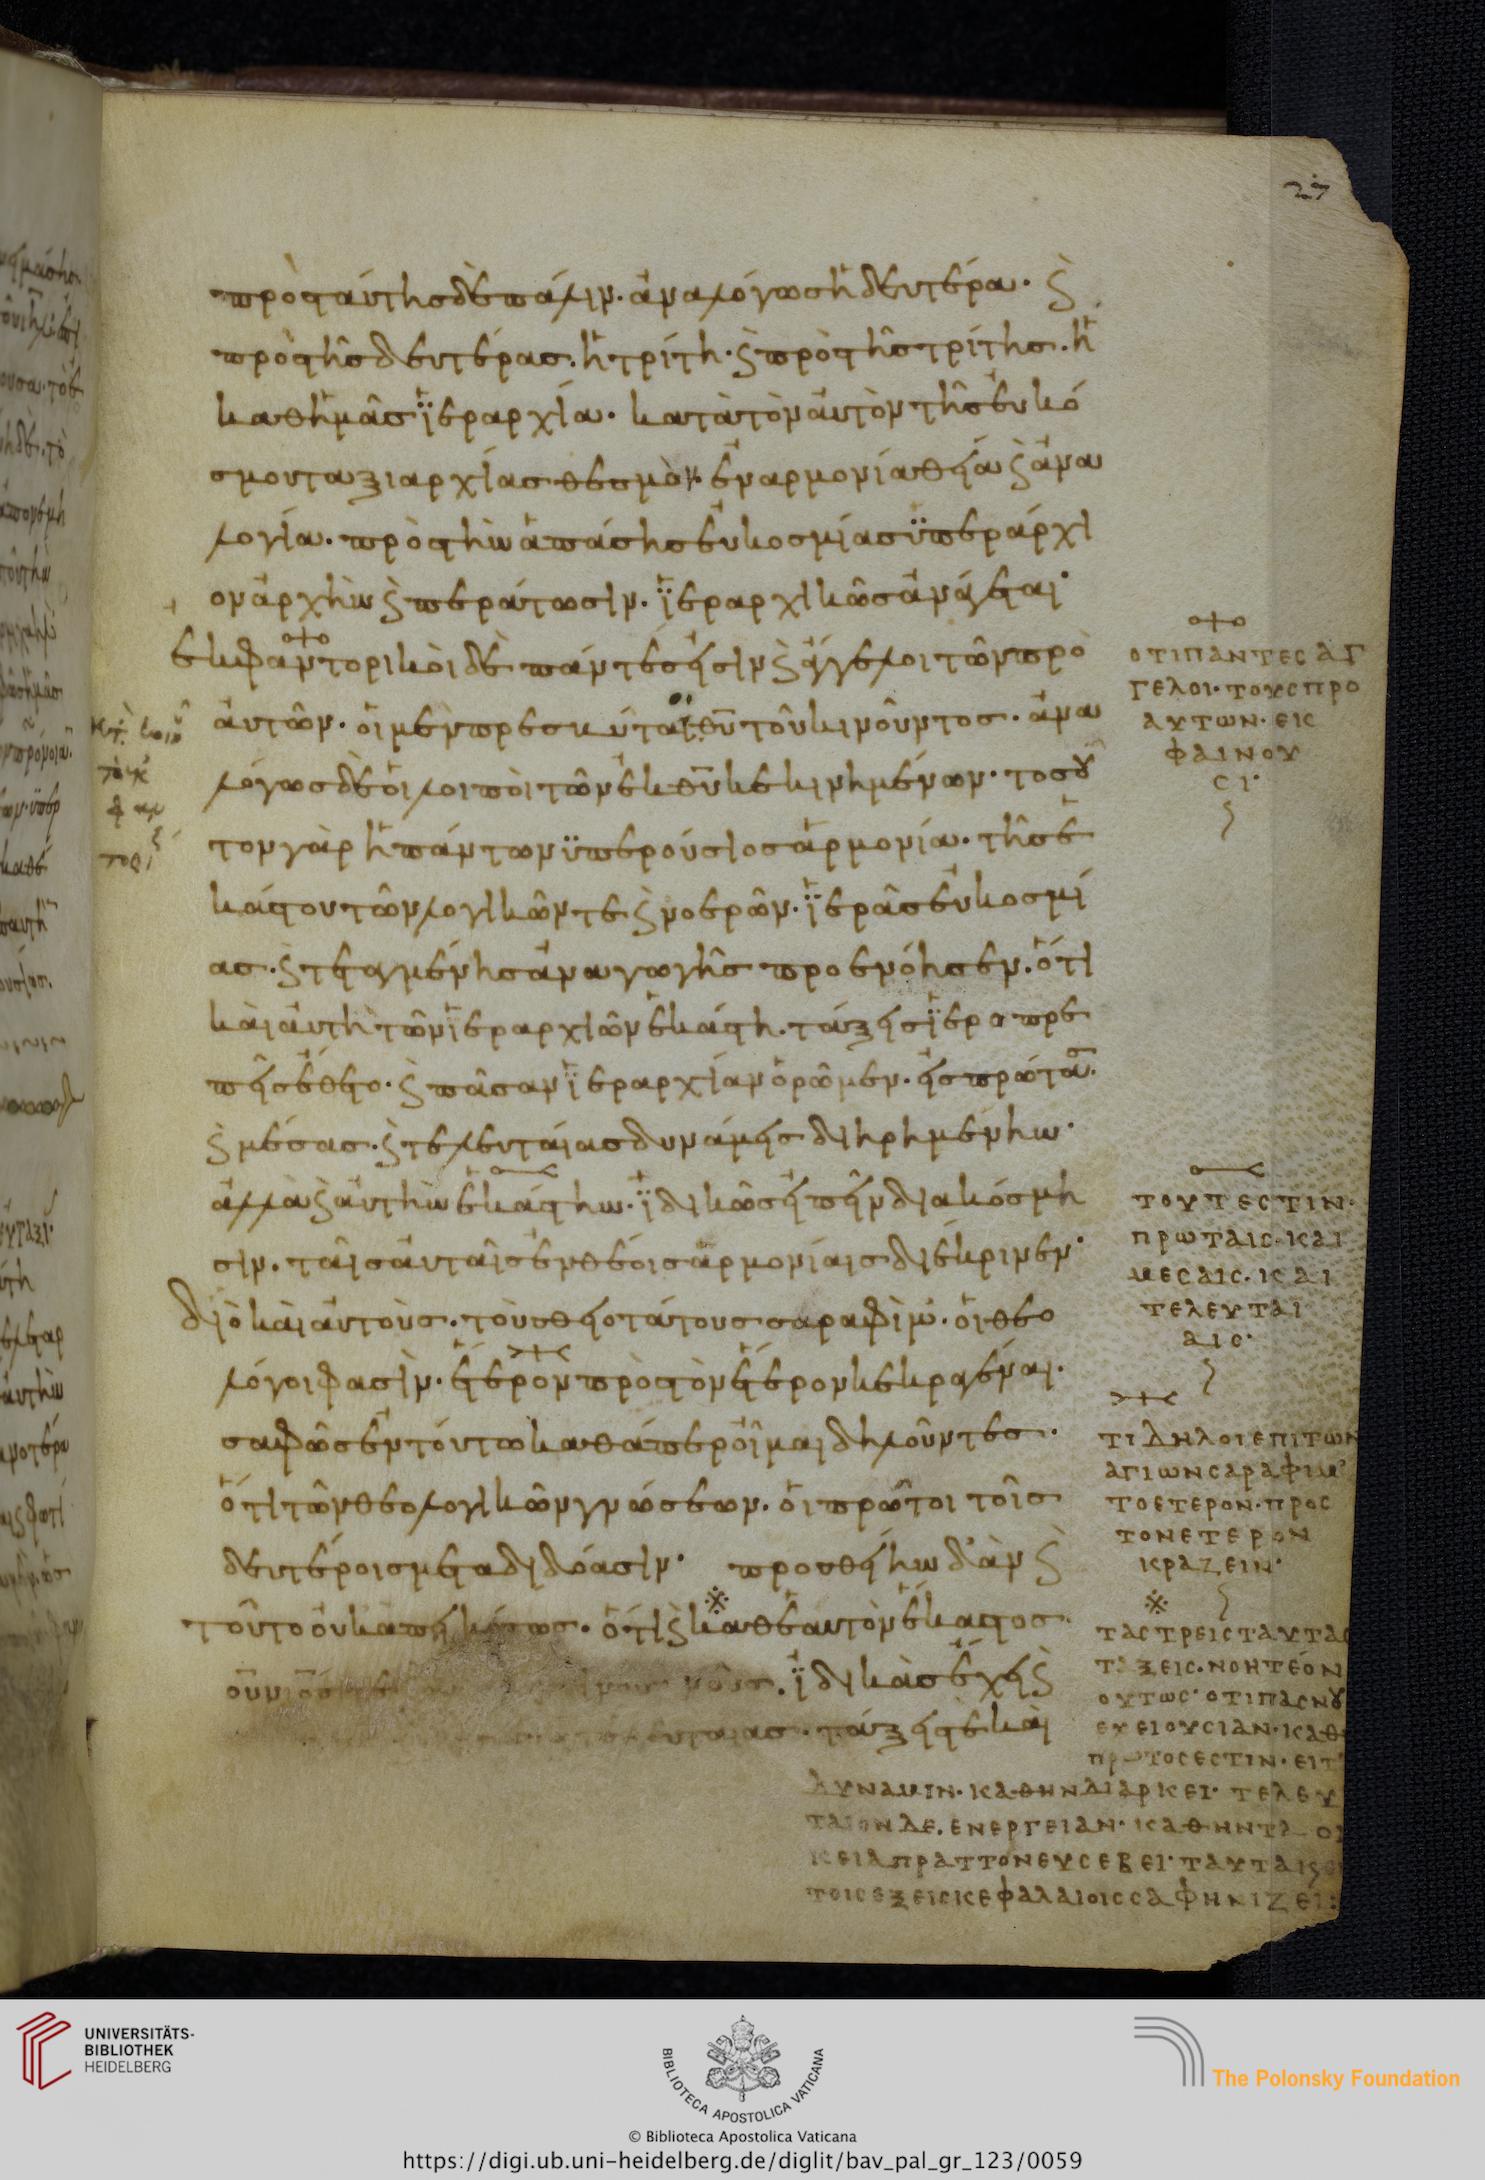 27
πρὸσ ταύτησ δὲ πάλιν· ἀναλόγωσ ἡ δευτέρα· ϗ
πρὸσ τῆσ δευτέρασ· ἡ τρίτη· ϗ πρὸσ τῆσ τρίτησ· ἡ
καθ ἡμᾶσ ϊεραρχία· κατὰ τὸν αὐτὸν τῆσ εὐκό
σμου ταξιαρχίασ θεσμὸν· ἐν αρμονία θεία ϗ ἀνα
λογία· πρὸσ τὴν ἁπάσησ εὐκοσμίασ ϋπεράρχι
ον ἀρχὴν ϗ περάτωσιν· ϊεραρχικῶσ ἀνάγεται·
ἐκφαντορικοὶ δὲ πάντεσ εἰσὶν ϗ ἄγγελοι τῶν πρὸ
αὐτῶν· οἱ μὲν πρεσβύται θυ τοῦ κινοῦντοσ· ἀνα
λόγωσ δὲ οἱ λοιποὶ τῶν ἐκ θυ κεκινημένων· τοσοῦ
τον γὰρ ἡ πάντων ϋπερούσιοσ ἁρμονία· τῆσ ἑ
κάστου τῶν λογικῶν τε ϗ νοερῶν· ϊερᾶσ εὐκοσμί
ασ· ϗ τεταγμένησ ἀναγωγῆσ προενόησεν· ὅτι
καὶ αὐτὴ τῶν ϊεραρχιῶν ἑκάστη· τάξεισ ϊεροπρε
πεῖσ ἔθετο· ϗ πᾶσαν ϊεραρχίαν ὁρῶμεν· εἰσ πρώτασ
ϗ μέσασ· ϗ τελευταίασ δυνάμεισ διηρημένην·
ἀλλὰ ϗ αὐτὴν ἑκάστην· ϊδικῶσ εἰπεῖν διακόσμη
σιν· ταῖσ αὐταῖσ ἐνθέοισ ἁρμονίαισ διέκρινεν·
διὸ καὶ αὐτοὺσ· τοὺσ θειοτάτουσ σαραφὶμ· οἱ θεο
λόγοι φασὶν· ἕτερον πρὸσ τὸν ἕτερον κεκραγέναι·
σαφῶσ ἐν τούτω καθάπερ οἶμαι δηλοῦντεσ·
ὅτι τῶν θεολογικῶν γνώσεων· οἱ πρῶτοι τοῖσ
δευτέροισ μεταδιδόασιν· προσθείην δ' ἂν ϗ
τοῦτο οὐκ ἀπεικότωσ· ὅτι ϗ καθ ἑαυτὸν ἕκαστοσ
νοῦσ· ϊδικὰσ ἔχει ϗ
τελευταιασ· τάξεισ τὲ καὶ
ΟΤΙ ΠΑΝΤΕC ΑΓ
ΓΕΛΟΙ· ΤΟΥC ΠΡΟ
ΑΥΤΩΝ· ΕΙC
ΦΑΙΝΟΥ
CΙ·
ΤΟΥΤΕCΤΙΝ·
ΠΡΩΤΑΙC· ΚΑΙ
ΜΕCΑΙC· ΚΑΙ
ΤΕΛΕΥΤΑΙ
ΑΙC·
ΤΙ ΔΗΛΟΙ ΕΠΙ ΤΩΝ
ΑΓΙΩΝ CΑΡΑΦΙΜ·
ΤΟ ΕΤΕΡΟΝ· ΠΡΟC
ΤΟΝ ΕΤΕΡΟΝ
ΚΡΑΖΕΙΝ·
ΤΑC ΤΡΕΙC ΤΑΥΤΑC
ΤΑΞΕΙC· ΝΟΗΤΕΟΝ
ΟΥΤΩC· ΟΤΙ ΠΑC ΝΟΥ
ΕΧΕΙ ΟΥCΙΑΝ· ΚΑΘ
ΠΡΩΤΟC ΕCΤΙΝ· ΕΙΤ
ΔΥΝΑΜΙΝ· ΚΑΘ ΗΝ ΔΙΑΡΚΕΙ· ΤΕΛΕΥ
ΤΑΙΟΝ ΔΕ· ΕΝΕΡΓΕΙΑΝ· ΚΑΘ ΗΝ ΤΑ ΟΙ
ΚΕΙΑ ΠΡΑΤΤΟΝ ΕΥCΕΒΕΙ· ΤΑΥΤΑ
ΤΟΙC ΕΞΕΙC ΚΕΦΑΛΑΙΟΙC CΑΦΗΝΙΖΕΙ:
UNIVERSITÄTS-
BIBLIOTHEK
HEIDELBERG
BIBLIOTECA APOSTOLICA VATICANA
The Polonsky Foundation
© Biblioteca Apostolica Vaticana
https://digi.ub.uni-heidelberg.de/diglit/bav_pal_gr_123/0059